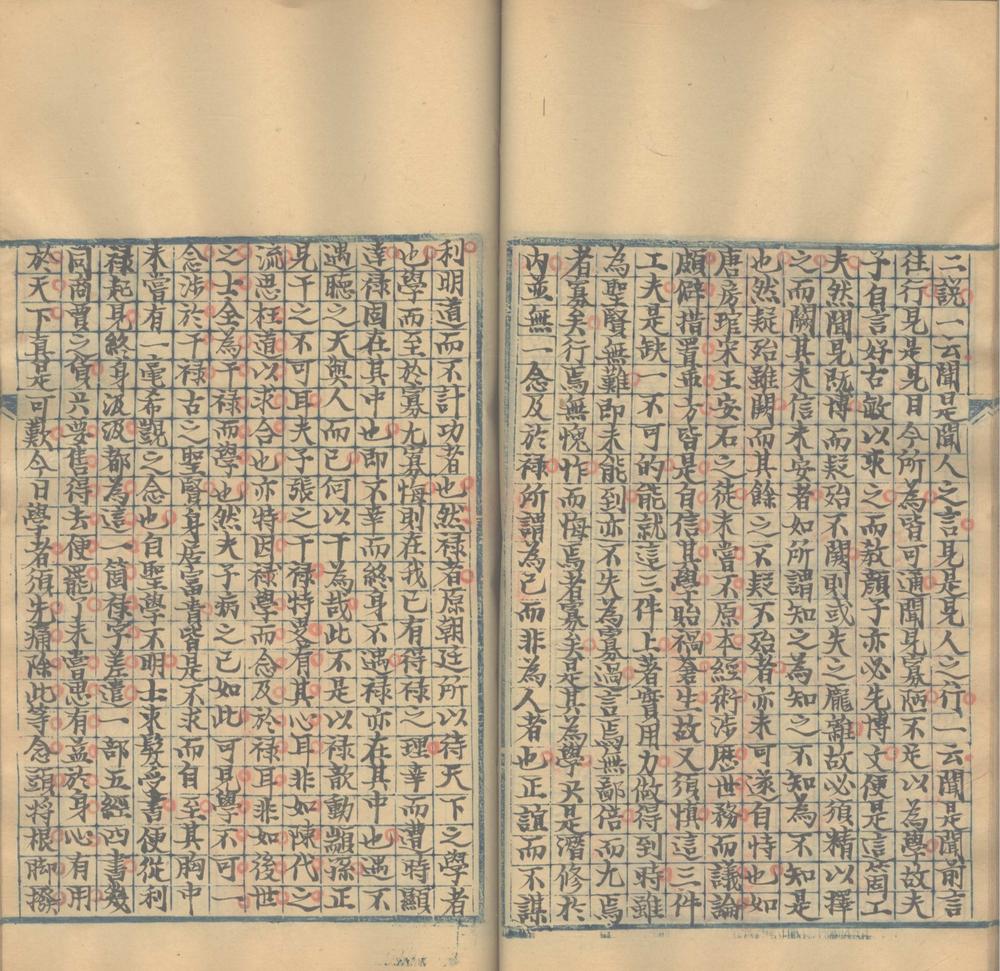 二説一云聞是聞人之言見是見人之行一云聞是聞前言
往行見是見目今所為皆可通聞見寡陋不足以為學故夫
子自言好古敏以求之而教顔子亦必先博文便是這箇工
夫然聞見既博而疑殆不闕則或失之龐雜故必須精以擇
之而闕其未信未安者如所謂知之為知之不知為不知是
也然疑殆雖闕而其餘之不疑不殆者亦未可遂自恃也如
唐房琯宋王安石之徒未嘗不原本經術涉歷世務而議論
頗僻措置乖方皆是自信其學貽禍蒼生故又須慎這三件
工夫是缺一不可的能就這三件上著實用力做得到時雖
為聖賢無難即未能到亦不失為寡過言焉無鄙倍而尤焉
者寡矣行焉無愧怍而悔焉者寡矣是其為學只是潛修於
内並無一念及於祿所謂為己而非為人者也正誼而不謀
利明道而不計功者也然祿者原朝廷所以待天下之學者
也學而至於寡尤寡悔則在我已有得祿之理幸而遭時顯
達祿固在其中也即不幸而終身不遇祿亦在其中也遇不
遇聽之天與人而已何以干為哉此不是以祿歆動顓孫正
見干之不可耳夫子張之干祿特受有其心耳非如陳代之
流思枉道以求合也亦特因祿學而念及於祿耳非如後世
之士全為干祿而學也然夫子病之已如此可見學不可一
念涉於干祿古之聖賢身居富貴皆是不求而自至其胸中
未嘗有一毫希覬之念也自聖學不明士束髮受書便從利
祿起見終身汲汲都為這一箇祿字差遣一部五經四書幾
同商賈之貨只要售得去便罷了未嘗思有益於身心有用
於天下真是可歎今日學者須先痛除此等念頭將根脚撥